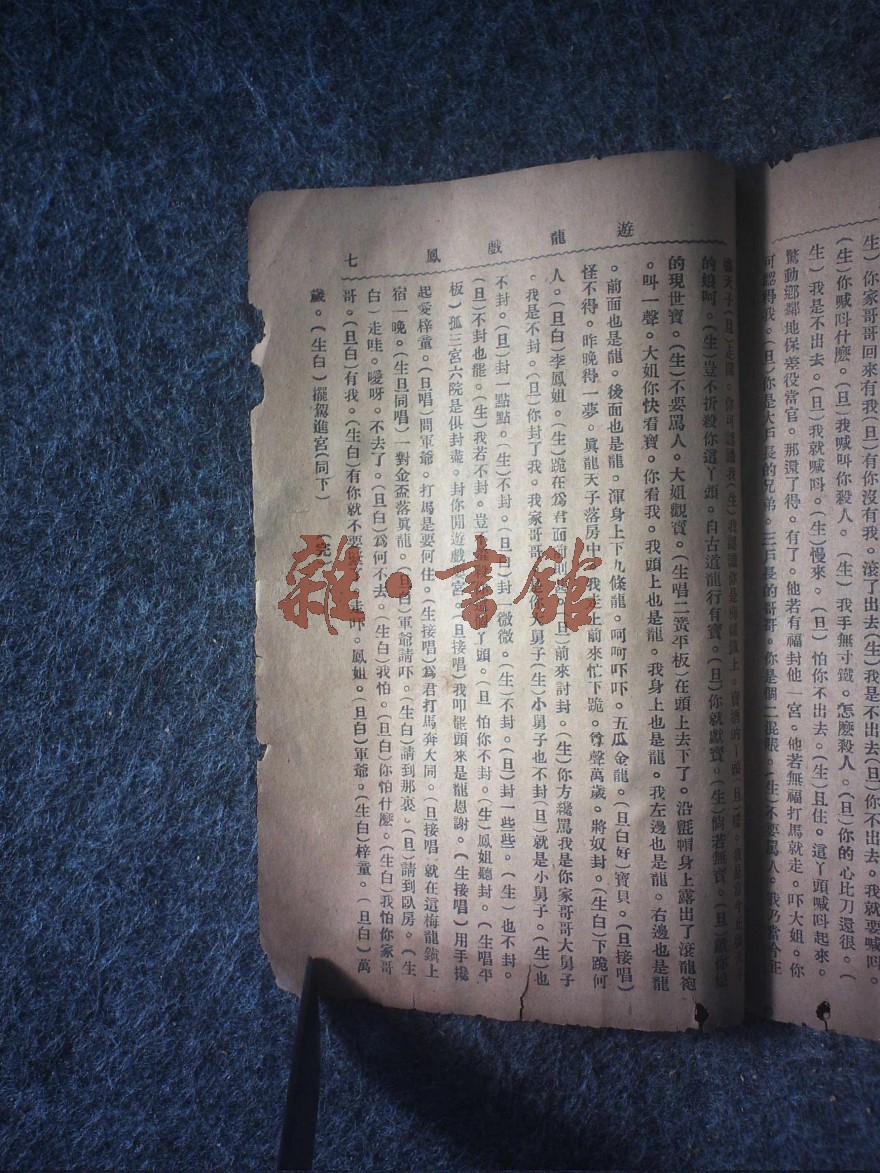 生)你家哥哥回來有我(旦)有你沒有我。滾了出去(生)我是不出去(旦)你不出去。我就要喊呌。
(生)你喊呌什麽。(旦)我喊呌你殺人。(生)我手無寸鐵。怎麽殺人。(旦)你的心比刀還很。(
生)我是不出去。(旦)我就喊呌。(生)慢來。(旦)怕你不出去。(生)且住。這丫頭喊呌起來。
驚動鄉鄰地保差役當官。那還了得。有了。他若有福封他一宮。他若無福打馬就走。吓大姐。你
可認得我。(旦)你是大戶長的兄弟。三戶長的哥哥。你是個二混賬。(生)不要罵人。我乃當今正
遊龍戲鳳 七
的娘呵。(生)豈不折殺你這丫頭。自古道龍行有寶。(旦)你就獻寶。(生)倘若無寶。(旦)
的現世寶。(生)不要罵人。大姐觀寶。(生唱二黃平板)在頭上去下了。沿氈帽身上露出了滾龍袍
。呌一聲。大姐你快看寶。你看我。我頭上也是龍。我身上也是龍。我左邊也是龍。右邊也是龍
。前面也是龍。後面也是龍。渾身上下九條龍。呵呵吓吓。五瓜金龍。(旦白好)寶貝。(旦接唱)
怪不得。昨晚得一夢。眞龍天子落房中。我走上前來忙下跪。尊聲萬歲。將奴封。(生白)下跪何
人。(旦白)李鳳姐。(生)跪在爲君面前則甚。(旦)前來討封。(生)你方纔罵我是你家哥哥大舅子
。我是不封。(旦)你封了我。我家哥哥是你大舅子(生)小舅子也不封(旦)就是小舅子。(生)也
不封。(旦)封一點點。(生)不封。(旦白)封一微微。(生)不封。(旦)封一些些。(生)也不封。
(旦)不封也罷。(生)我若不封。豈丫頭。(旦 怕你不封。(生)鳳姐聽封。(生唱平
板)孤三宮六院是俱封盡。封你閒遊戲宮。(旦接唱)我叩罷頭來是龍恩謝。(生接唱)用手攙
起愛梓童。(旦唱)問軍爺。打馬是要何住。(生接唱)爲君打馬奔大同。(旦接唱 就在這梅龍鎭上
宿一晚。(生旦同唱)一對金盃落眞龍。(旦白)軍爺請吓。(生白)請到那裏。(旦)請到臥房。(生
白)走哇。噯呀。不去了。(旦白)爲何不去。(生白)我怕。(旦白)你怕什麽。(生白)我怕你家哥
哥。(旦白)有我。(生白)有你就不要走吓。鳳姐。(旦白)軍爺。(生白)梓童。(旦白)萬
歲。(生白)擺駕進宮(同下) (完)
雜·書館